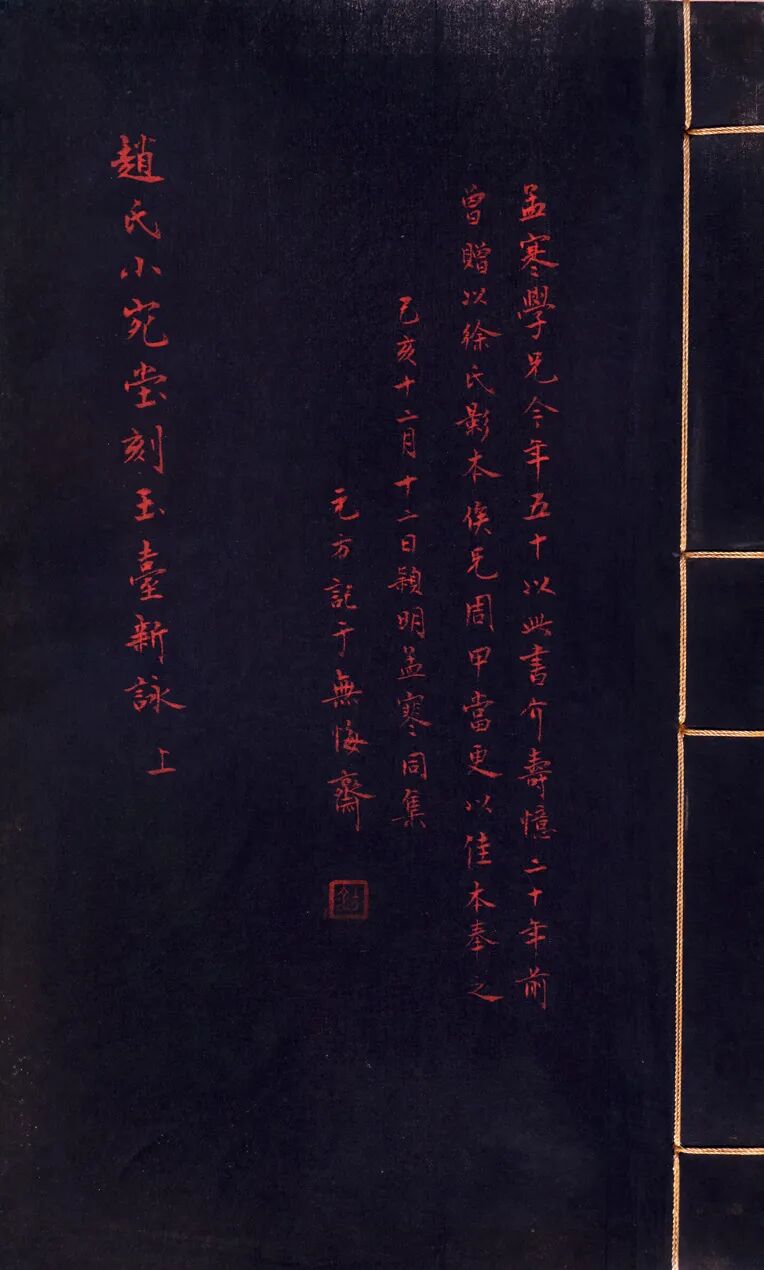 孟寒學兄今年五十以此書介壽憶二十年前
曾贈以徐氏影本俟兄周甲當更以佳本奉之
己亥十二月十二日穎明孟寒同集
元方記于無悔齋
趙氏小宛堂刻玉臺新詠 上